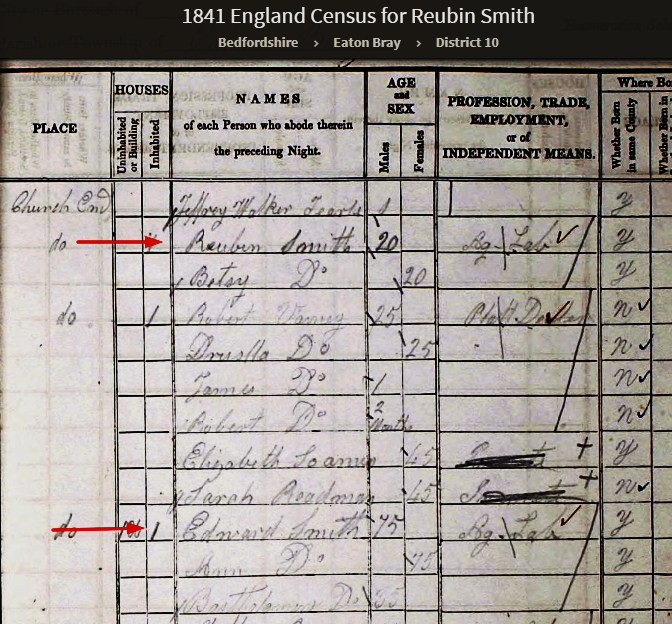 1841 England Census for Reubin Smith
Bedfordshire > Eaton Bray > District 10
PLACE
HOUSES
Uninhabited or Building
Inhabited
NAMES
of each Person who abode therein
the preceding Night.
AGE
and
SEX
Males
Females
PROFESSION, TRADE,
EMPLOYMENT,
or of
INDEPENDENT MEANS.
Where Bo
Whether Born in same County
Church End Jeffrey Walker 1 y
do 1 Reuben Smith 20 Ag Lab y
Betsy Do 20 y
do 1 Robert 25 n
Drusilla Do 25 n
James Do 1 n
Robert Do 2 Months n
Elizabeth 45 y
Sarah Readman 45 n
do 1 Edward Smith 75 Ag Lab y
Ann Do 75 y
Bartholomew Do 35 y